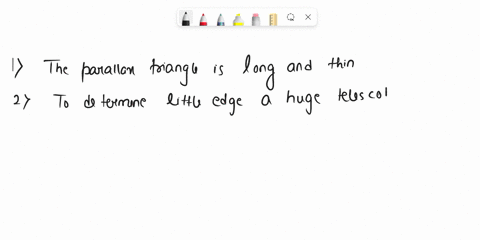 1) The parallax triangle is long and thin
2) To determine little edge a huge telescol